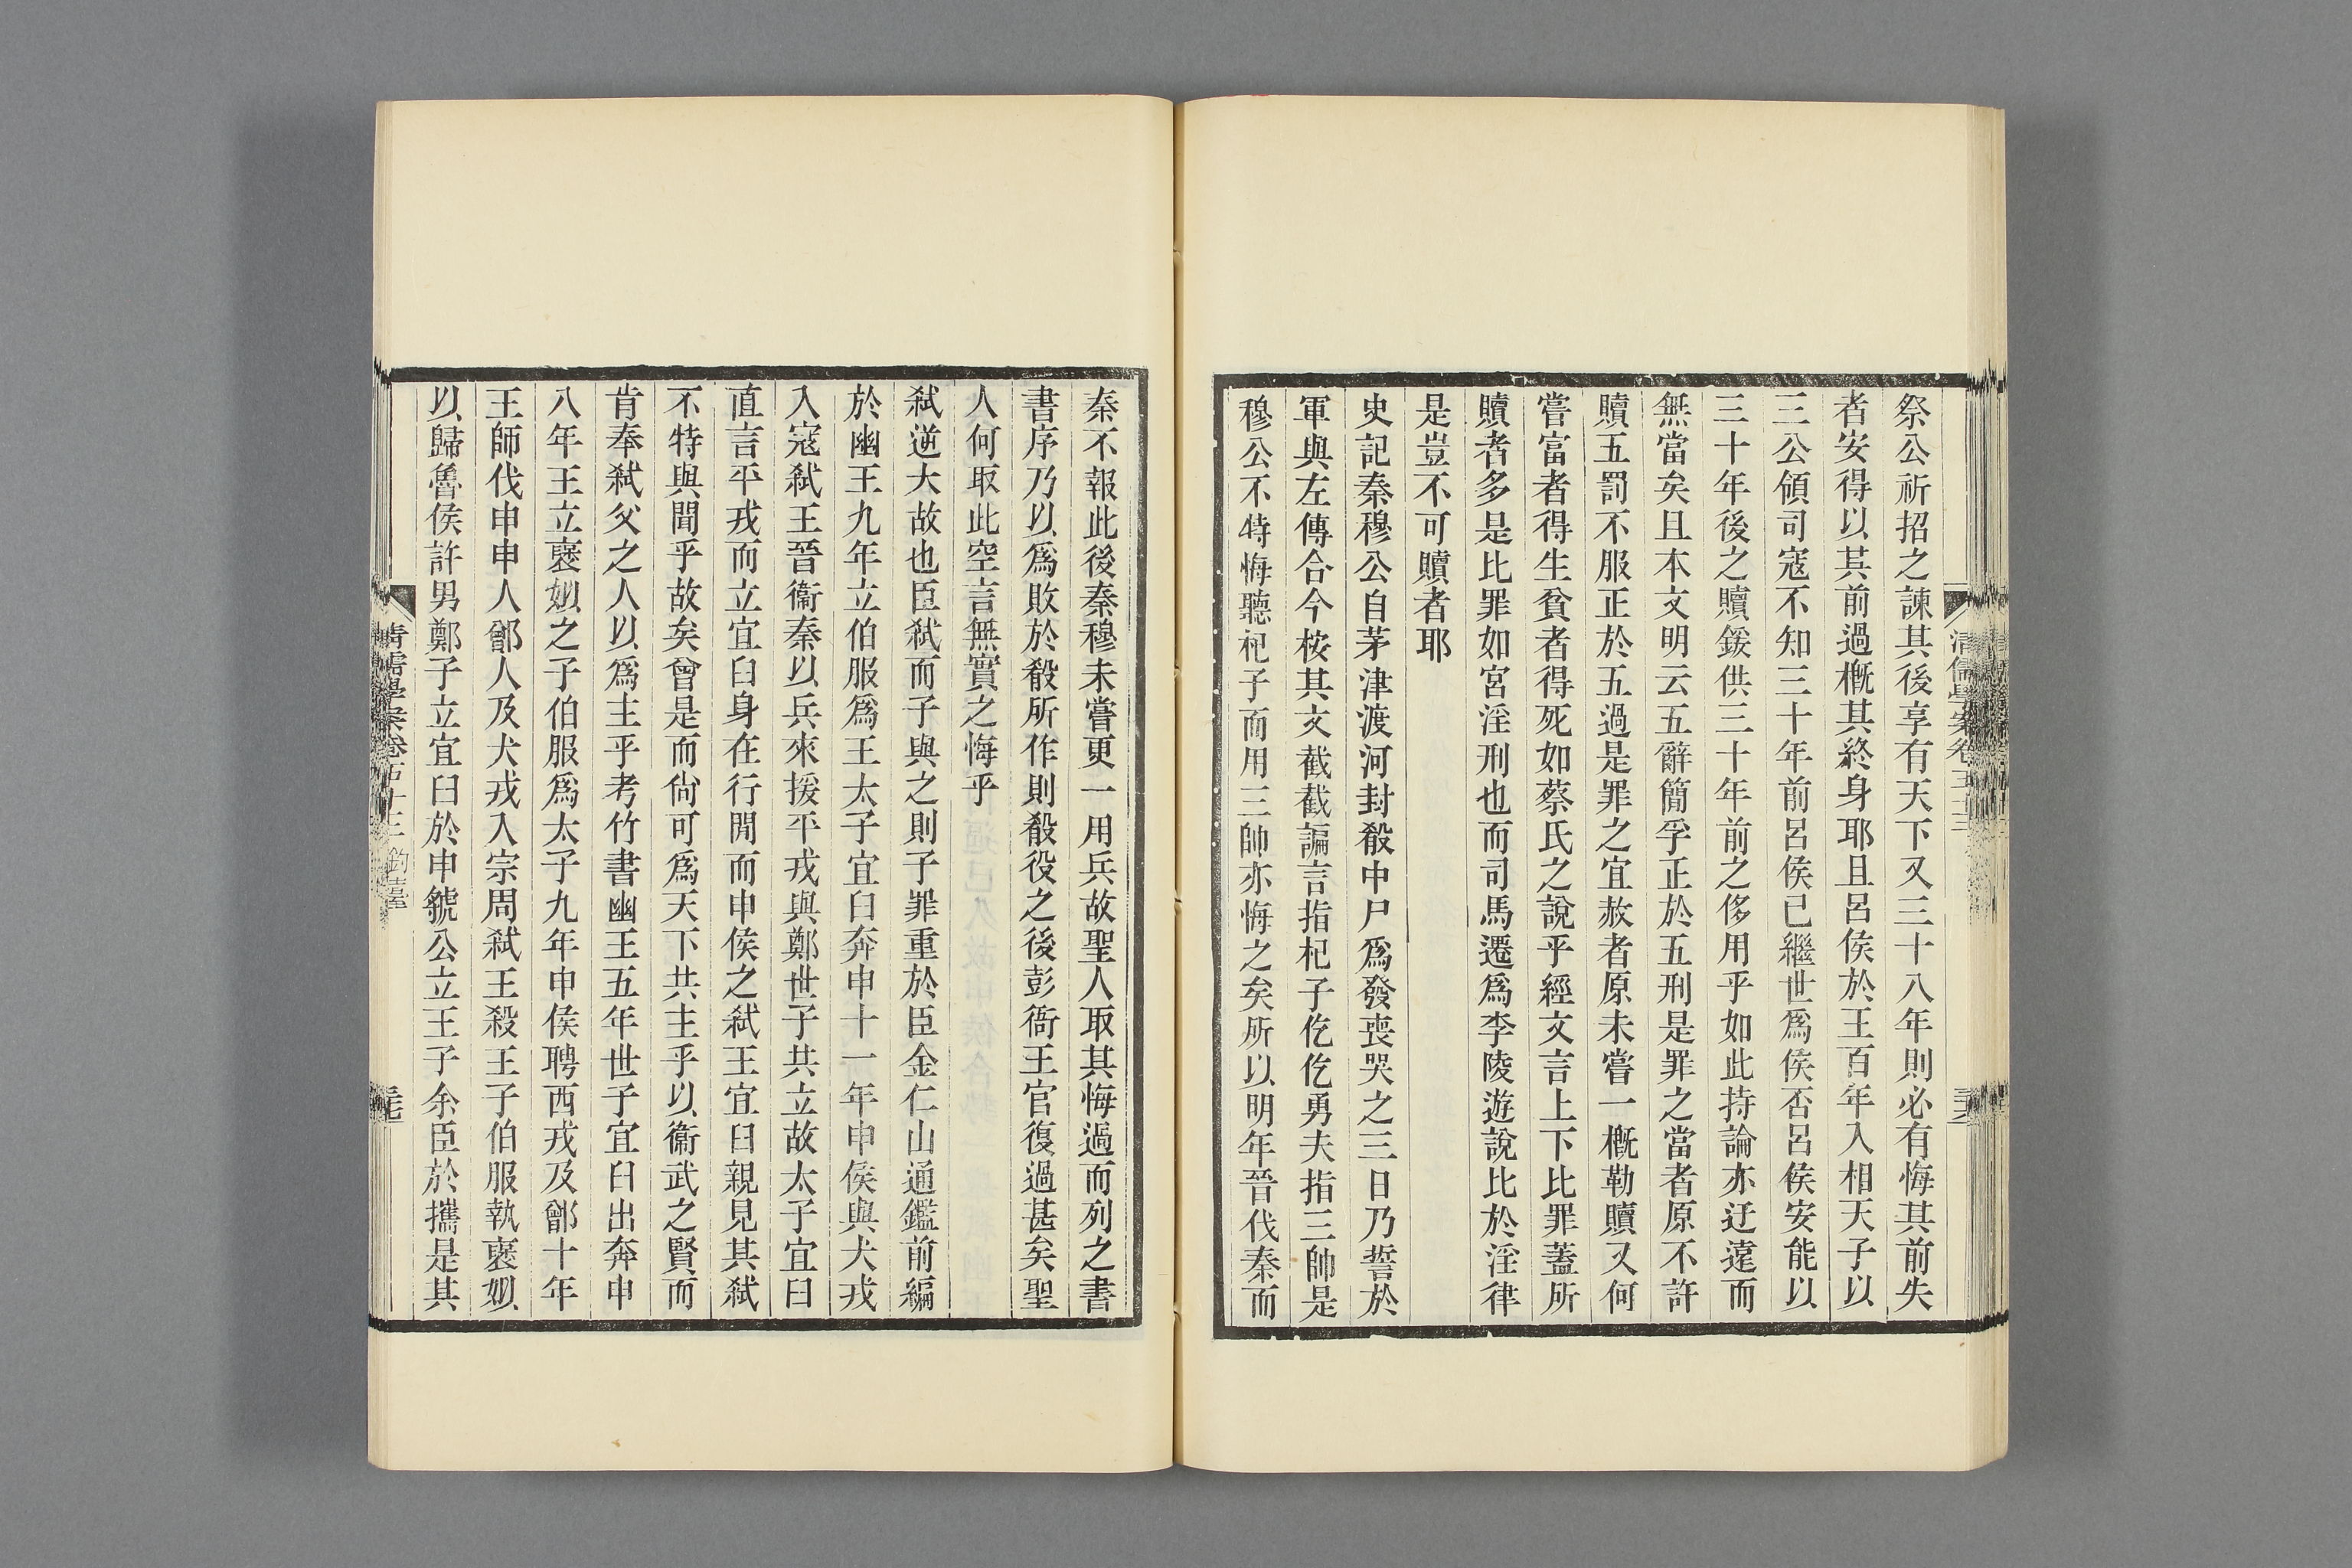 祭公祈招之諫其後享有天下又三十八年則必有悔其前失
者安得以其前過概其終身耶且呂侯於王百年入相天子以
三公領司寇不知三十年前呂侯已繼世爲侯否呂侯安能以
三十年後之贖鍰供三十年前之侈用乎如此持論亦迂遠而
無當矣且本文明云五辭簡孚正於五刑是罪之當者原不許
贖五罰不服正於五過是罪之宜赦者原未嘗一概勒贖又何
嘗富者得生貧者得死如蔡氏之說乎經文言上下比罪蓋所
贖者多是比罪如宮淫刑也而司馬遷爲李陵遊說比於淫律
是豈不可贖者耶
史記秦穆公自茅津渡河封殽中尸爲發喪哭之三日乃誓於
軍與左傳合今桉其文截截諞言指杞子仡仡勇夫指三帥是
穆公不特悔聽杞子而用三帥亦悔之矣所以明年晉伐秦而
清儒學案卷五十三
秦不報此後秦穆未嘗更一用兵故聖人取其悔過而列之書
書序乃以爲敗於殽所作則殽役之後彭衙王官復過甚矣聖
人何取此空言無實之悔乎
弒逆大故也臣弒而子與之則子罪重於臣金仁山通鑑前編
於幽王九年立伯服爲王太子宜臼奔申十一年申侯與犬戎
入寇弒王晉衞秦以兵來援平戎與鄭世子共立故太子宜臼
直言平戎而立宜臼身在行閒而申侯之弒王宜臼親見其弒
不特與聞乎故矣曾是而尙可爲天下共主乎以衞武之賢而
肯奉弒父之人以爲主乎考竹書幽王五年世子宜臼出奔申
八年王立褒姒之子伯服爲太子九年申侯聘西戎及鄫十年
王師伐申申人鄫人及犬戎入宗周弒王殺王子伯服執褒姒
以歸魯侯許男鄭子立宜臼於申虢公立王子余臣於攜是其
清儒學案卷五十三 鈞臺